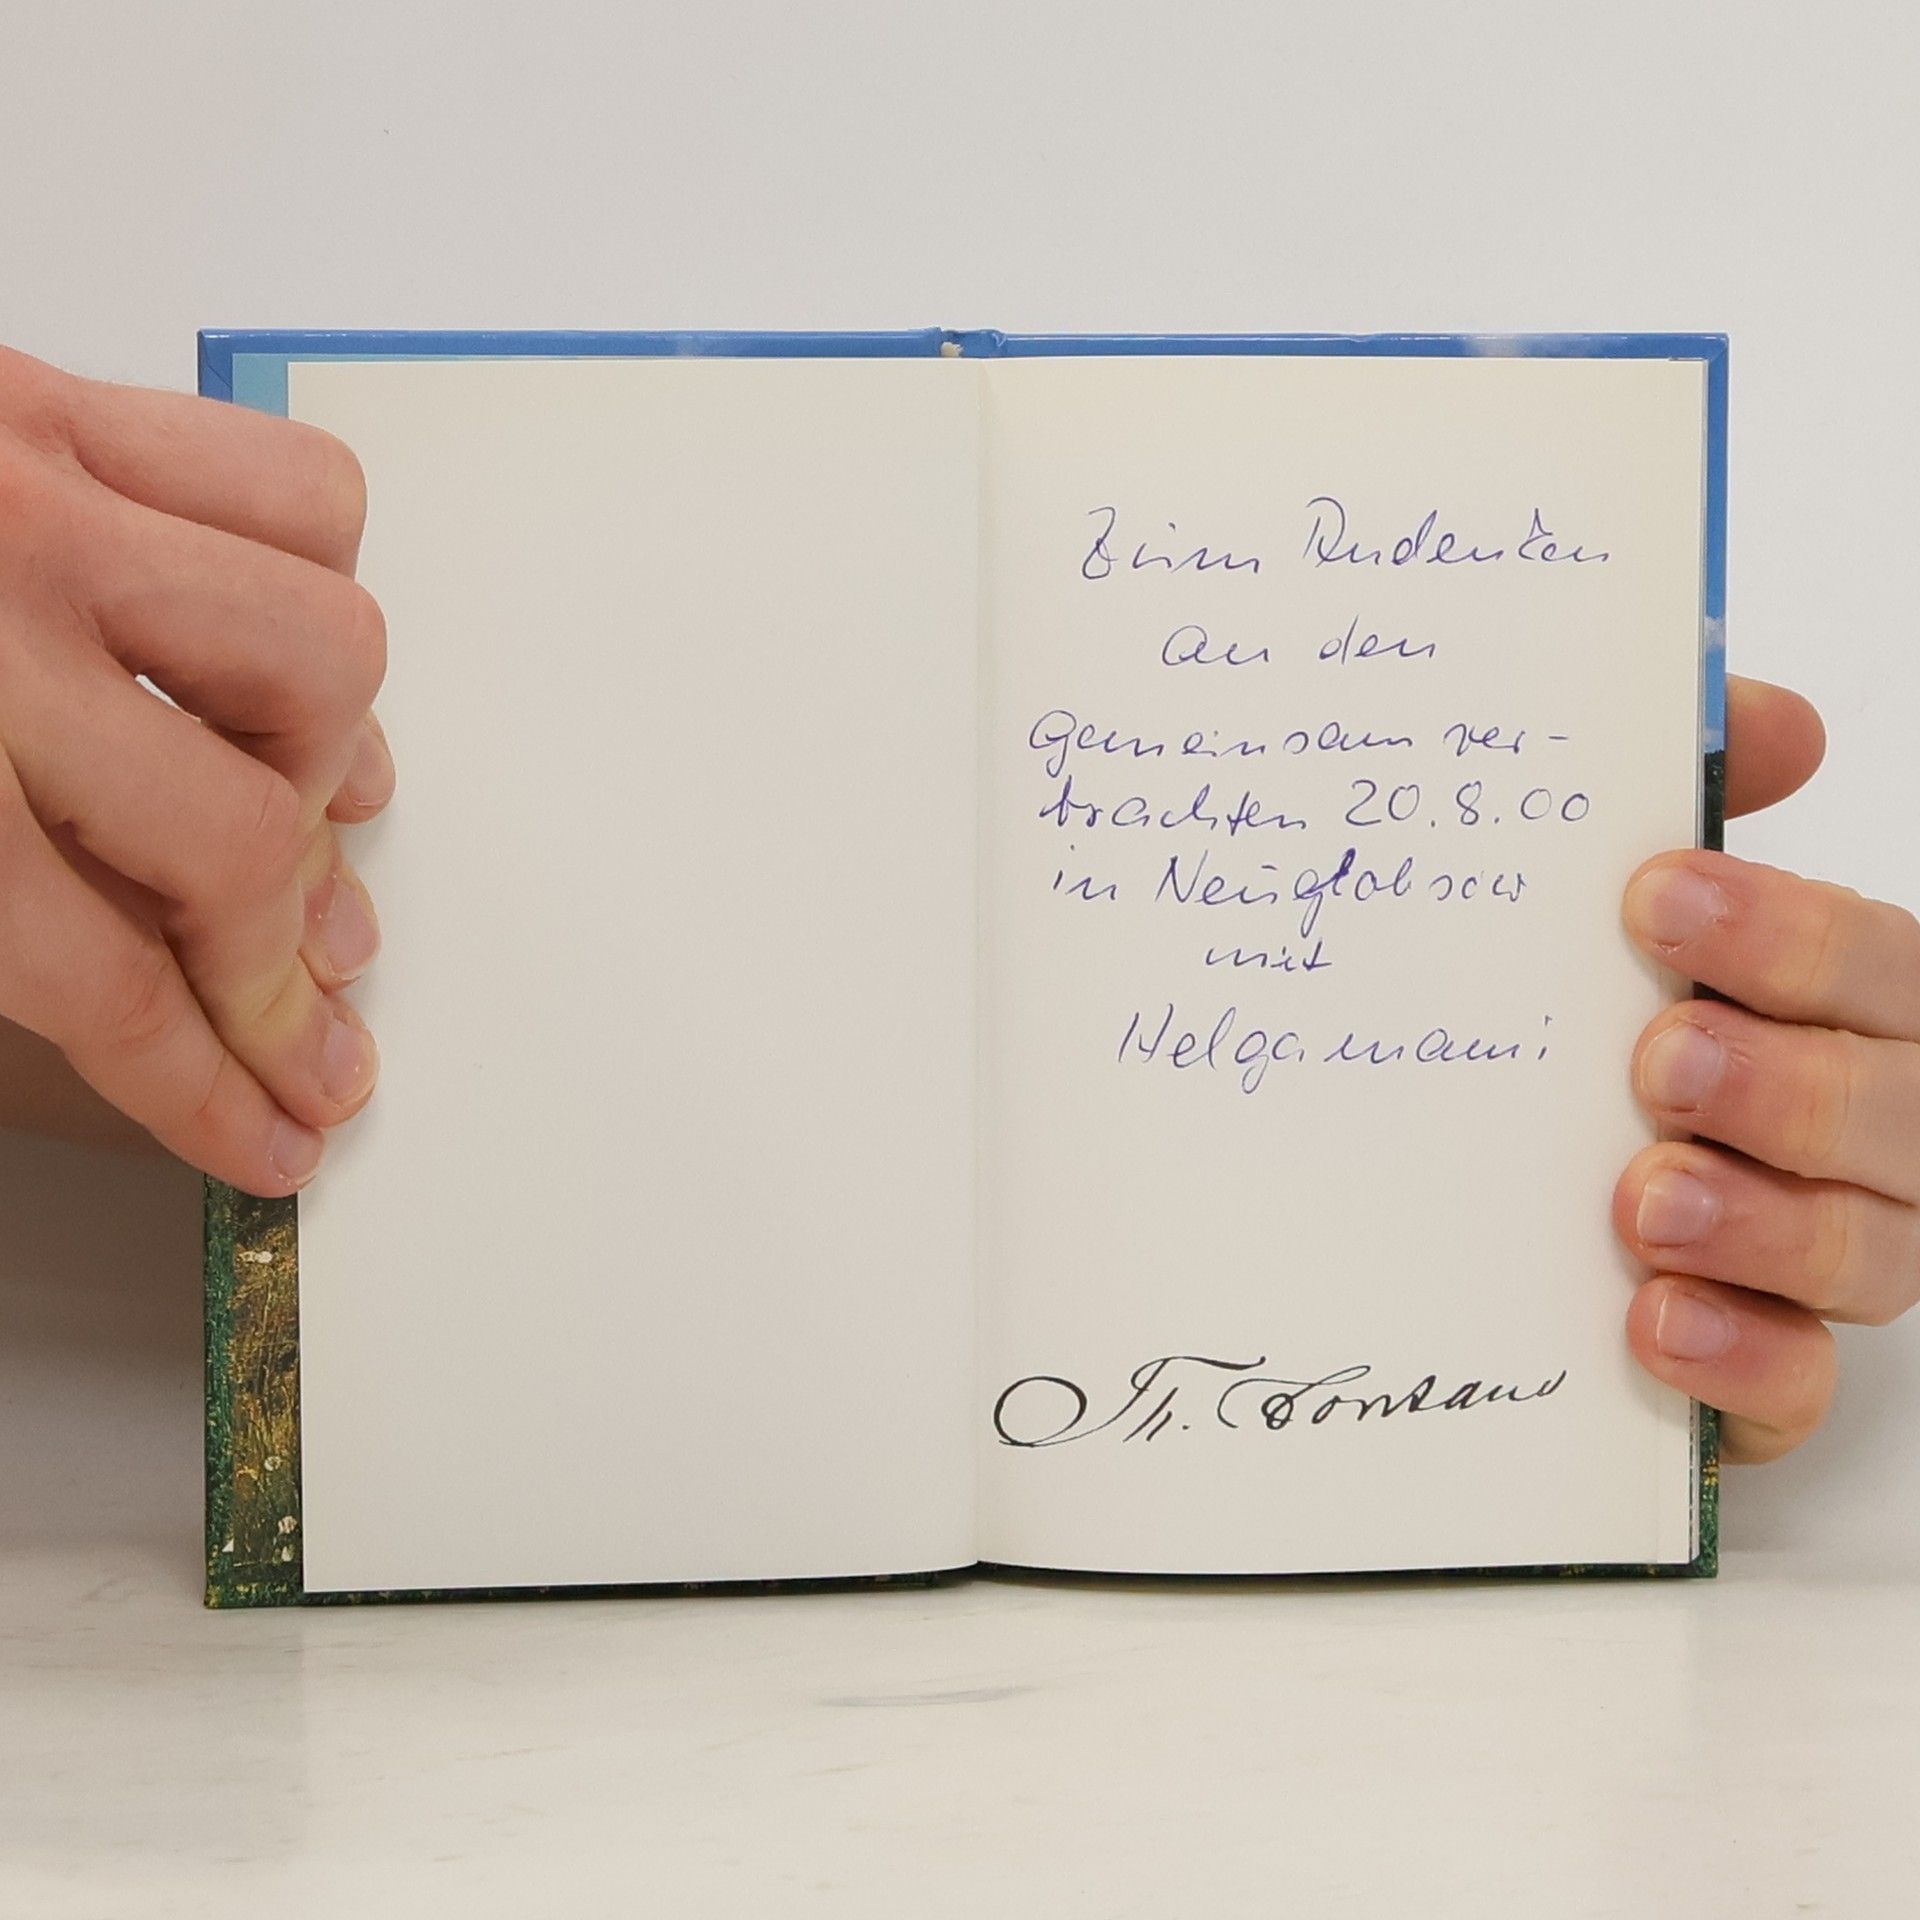 Zum Andenken
an den
gemeinsam ver-
brachten 20.8.00
in Neuglobsow
mit
Helgamami
Th. Fontane